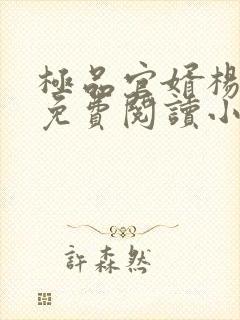 極品官婿楊
免費閱讀小
許森然